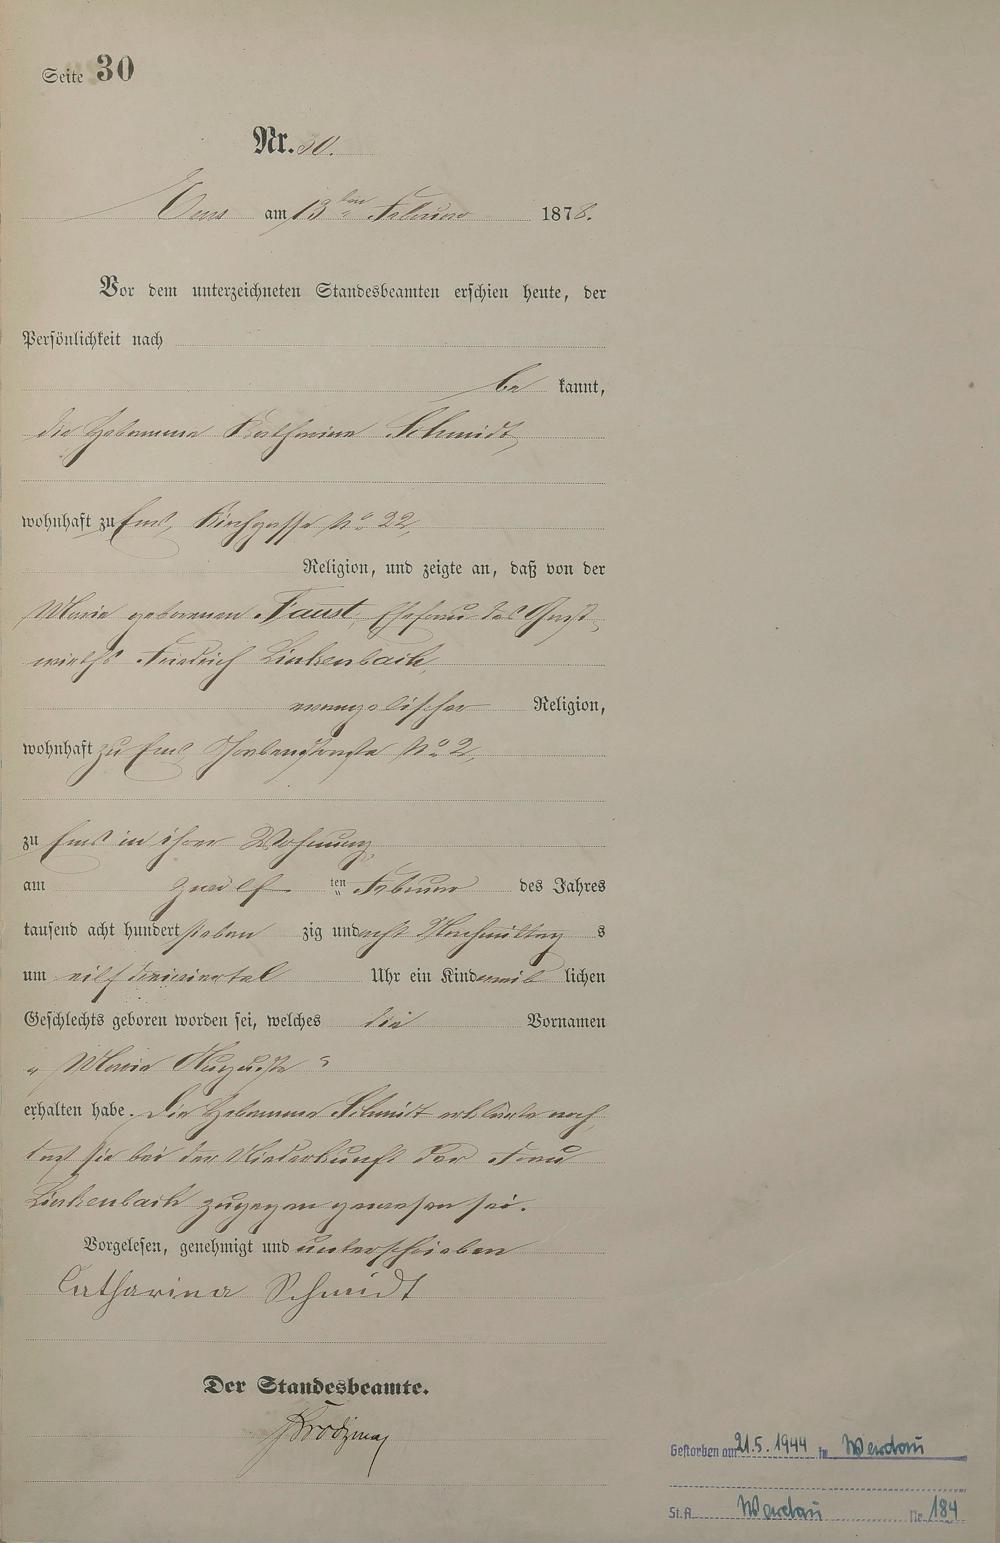 Seite 30
Nr. 30.
Ems am 13ten Februar 1878.
Vor dem unterzeichneten Standesbeamten erschien heute, der
Persönlichkeit nach
be kannt,
die Hebamme Katharina Schmidt,
wohnhaft zu Ems, Kirchgasse No 22,
Religion, und zeigte an, daß von der
Marie geborenen Faust, Ehefrau des Gast-
wirths Friedrich Linkenbach,
evangelischer Religion,
wohnhaft zu Ems No 2,
zu Ems in ihrer Wohnung
am zwölf ten Februar des Jahres
tausend acht hundert sieben zig und acht Nachmittag s
um eilf dreiviertel Uhr ein Kind weib lichen
Geschlechts geboren worden sei, welches die Vornamen
„ Marie Auguste “
erhalten habe. Die Hebamme Schmidt erklärte noch,
daß sie bei der Niederkunft der Frau
Linkenbach zugegen gewesen sei.
Vorgelesen, genehmigt und unterschrieben
Catharina Schmidt
Der Standesbeamte.
Gestorben am 21.5.1944 in Werdau
St.A. Werdau Nr. 184